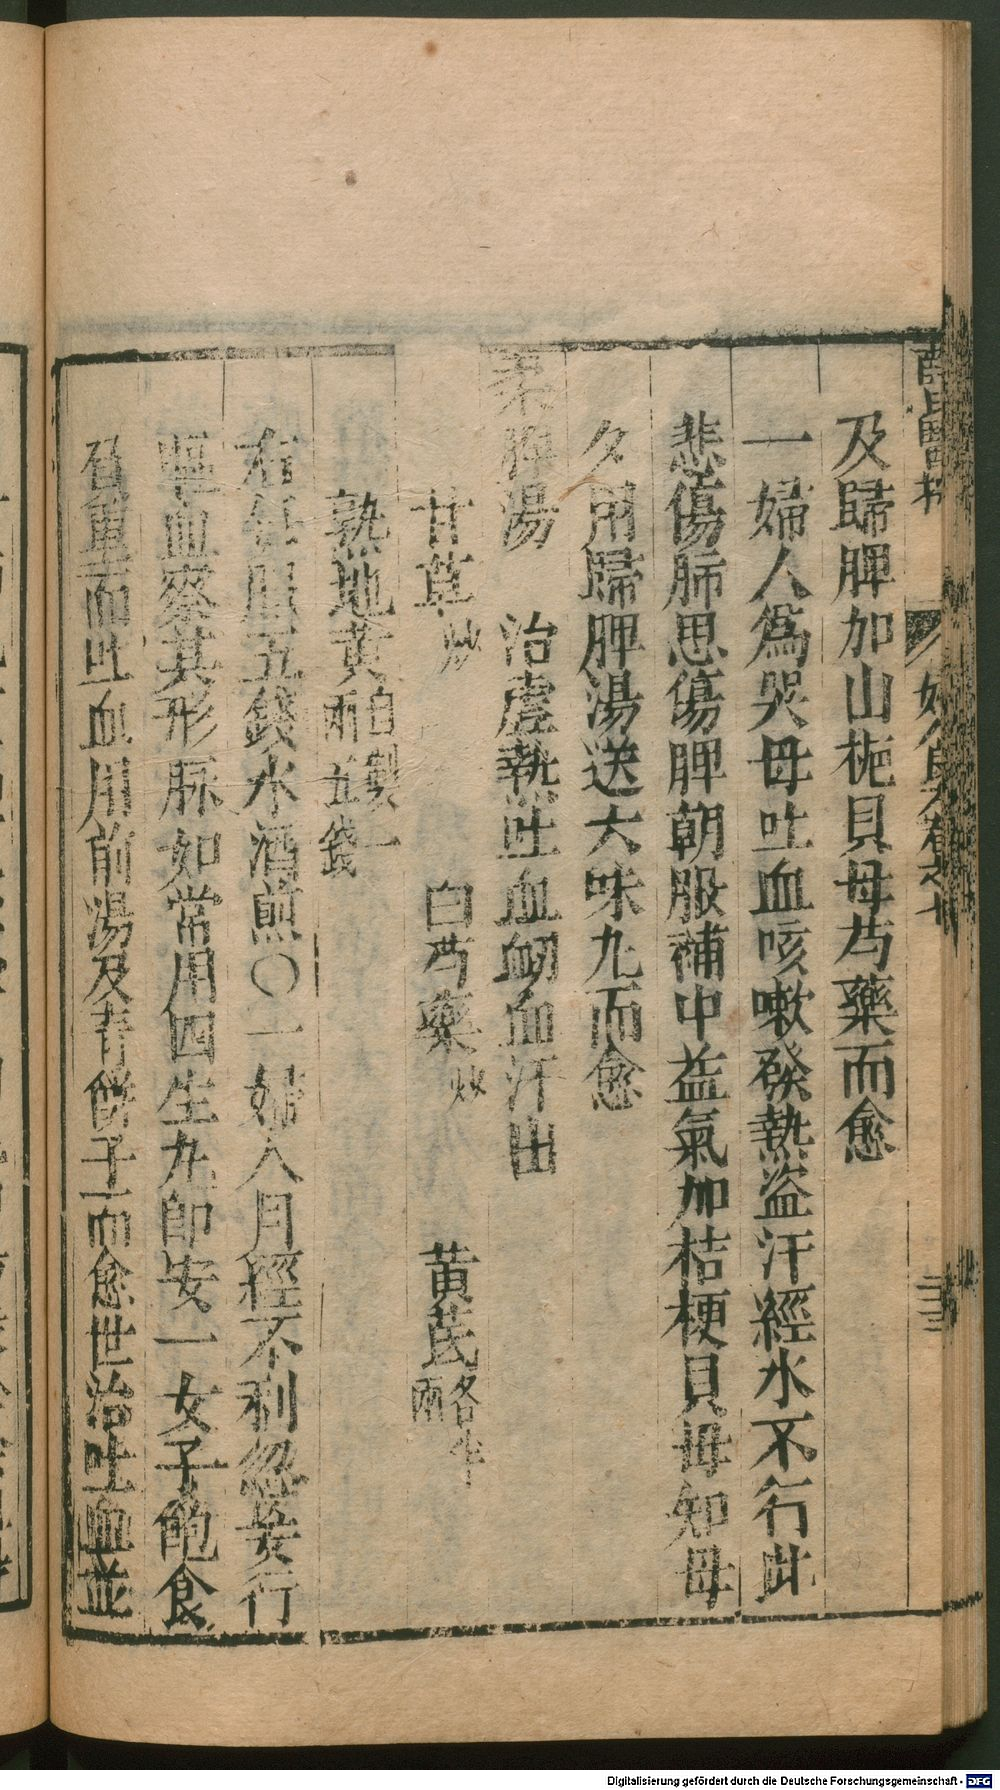 薛氏醫按 婦人良方卷之七
及歸脾加山梔貝母芍藥而愈
一婦人爲哭母吐血咳嗽發熱盜汗經水不行此
悲傷肺思傷脾朝服補中益氣加桔梗貝母知母
夕用歸脾湯送六味丸而愈
柔脾湯 治虛熱吐血衂血汗出
甘草炒 白芍藥炒 黃芪各半兩
熟地黃自製一兩五錢
右每服五錢水酒煎○一婦人月經不利忽妄行
嘔血察其形脉如常用四生丸即安一女子飽食
負重而吐血用前湯及青餅子而愈世治吐血並
Digitalisierung gefördert durch die Deutsche Forschungsgemeinschaft - DFG